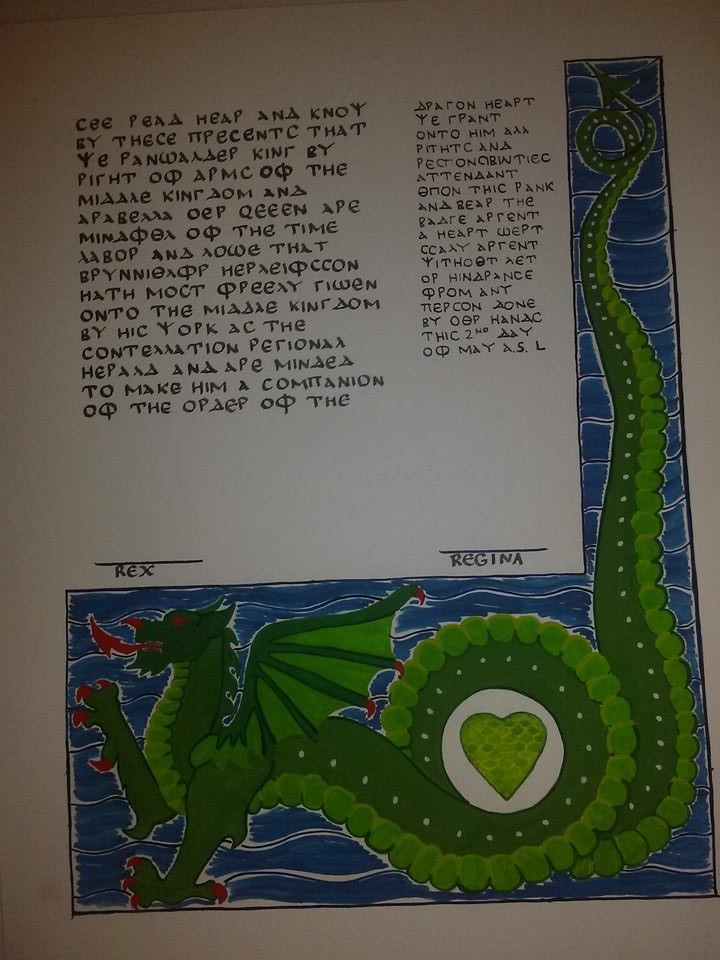 CEE PEAΔ HEAP ANΔ KNOΨ
BY THECE ΠPECENTC THAT
ΨE PANWAΛΔEP KING BY
PIGHT OΦ APMC OΦ THE
MIΔΔΛE KINGΔOM ANΔ
APABEΛΛA OEP QEEEN APE
MINΔΦΘΛ OΦ THE TIME
ΛABOP ANΔ ΛOWE THAT
BPYNNIΘΛΦP HEPΛEIΦCCON
HATH MOCT ΦPEEΛY ΓIWEN
ONTO THE MIΔΔΛE KINGΔOM
BY HIC ΨOPK AC THE
CONTEΛΛATION PEΓIONAΛ
HEPAΛΔ ANΔ APE MINΔEΔ
TO MAKE HIM A COMΠANION
OΦ THE OPΔEP OΦ THE
ΔPAΓON HEAPT
ΨE ΓPANT
ONTO HIM AΛΛ
PIΓHTC ANΔ
ATTENΔANT
ΘΠON THIC PANK
ANΔ BEAP THE
BAΔΓE APΓENT
A HEAPT WEPT
CCAΛY APΓENT
ΨITHOΘT ΛET
OP HINΔPANCE
ΦPOM ANY
ΠEPCON ΔONE
BY OΘP HANΔC
THIC 2ND ΔAY
OΦ MAY A.S. L
REX
REGINA